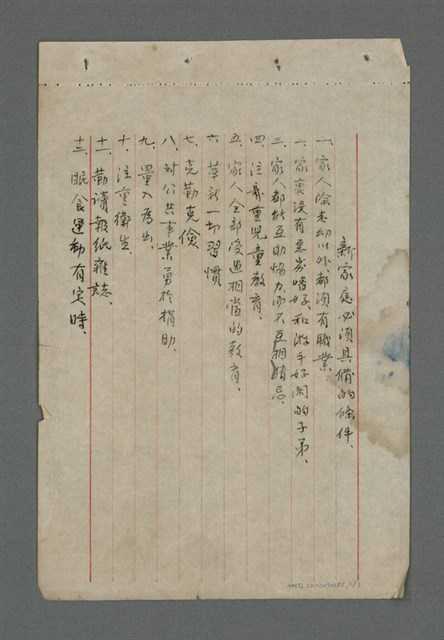 新家庭必須具備的條件、
一、家人除老幼以外、都須有職業、
二、家裏沒有惡劣嗜好和游手好閑的子弟、
三、家人都能互助協力而不互相猜忌、
四、注意兒童教育、
五、家人全部受過相當的教育、
六、革新一切習慣
七、克勤克儉、
八、對公共事業勇於捐助、
九、量入為出、
十、注重衛生、
十一、勤讀報紙雜誌、
十二、眠食運動有定時、